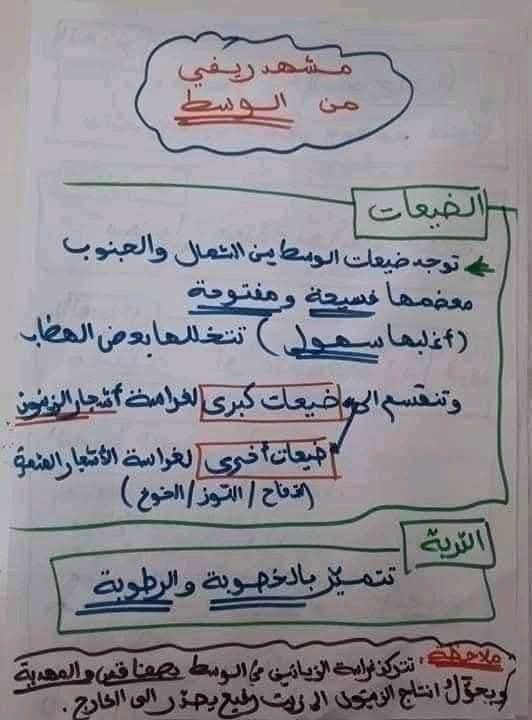 مشهد ريفي
من الوسط
الضيعات
توجد ضيعات الوسط بين الشمال والجنوب
معضمها فسيحة و مفتوحة
(أغلبها سهول) تتخللها بعض الهضاب
وتنقسم الى ضيعات كبرى لغراسة أشجار الزيتون
ضيعات أخرى لغراسة الأشجار المثمرة
(التفاح / اللوز / الخوخ)
التربة
تتميز بالخصوبة والرطوبة
ملاحظة: تتركز غراسة الزياتين في الوسط بصفاقس والمهدية
ويحول انتاج الزيتون الى زيت رفيع يصدر الى الخارج.